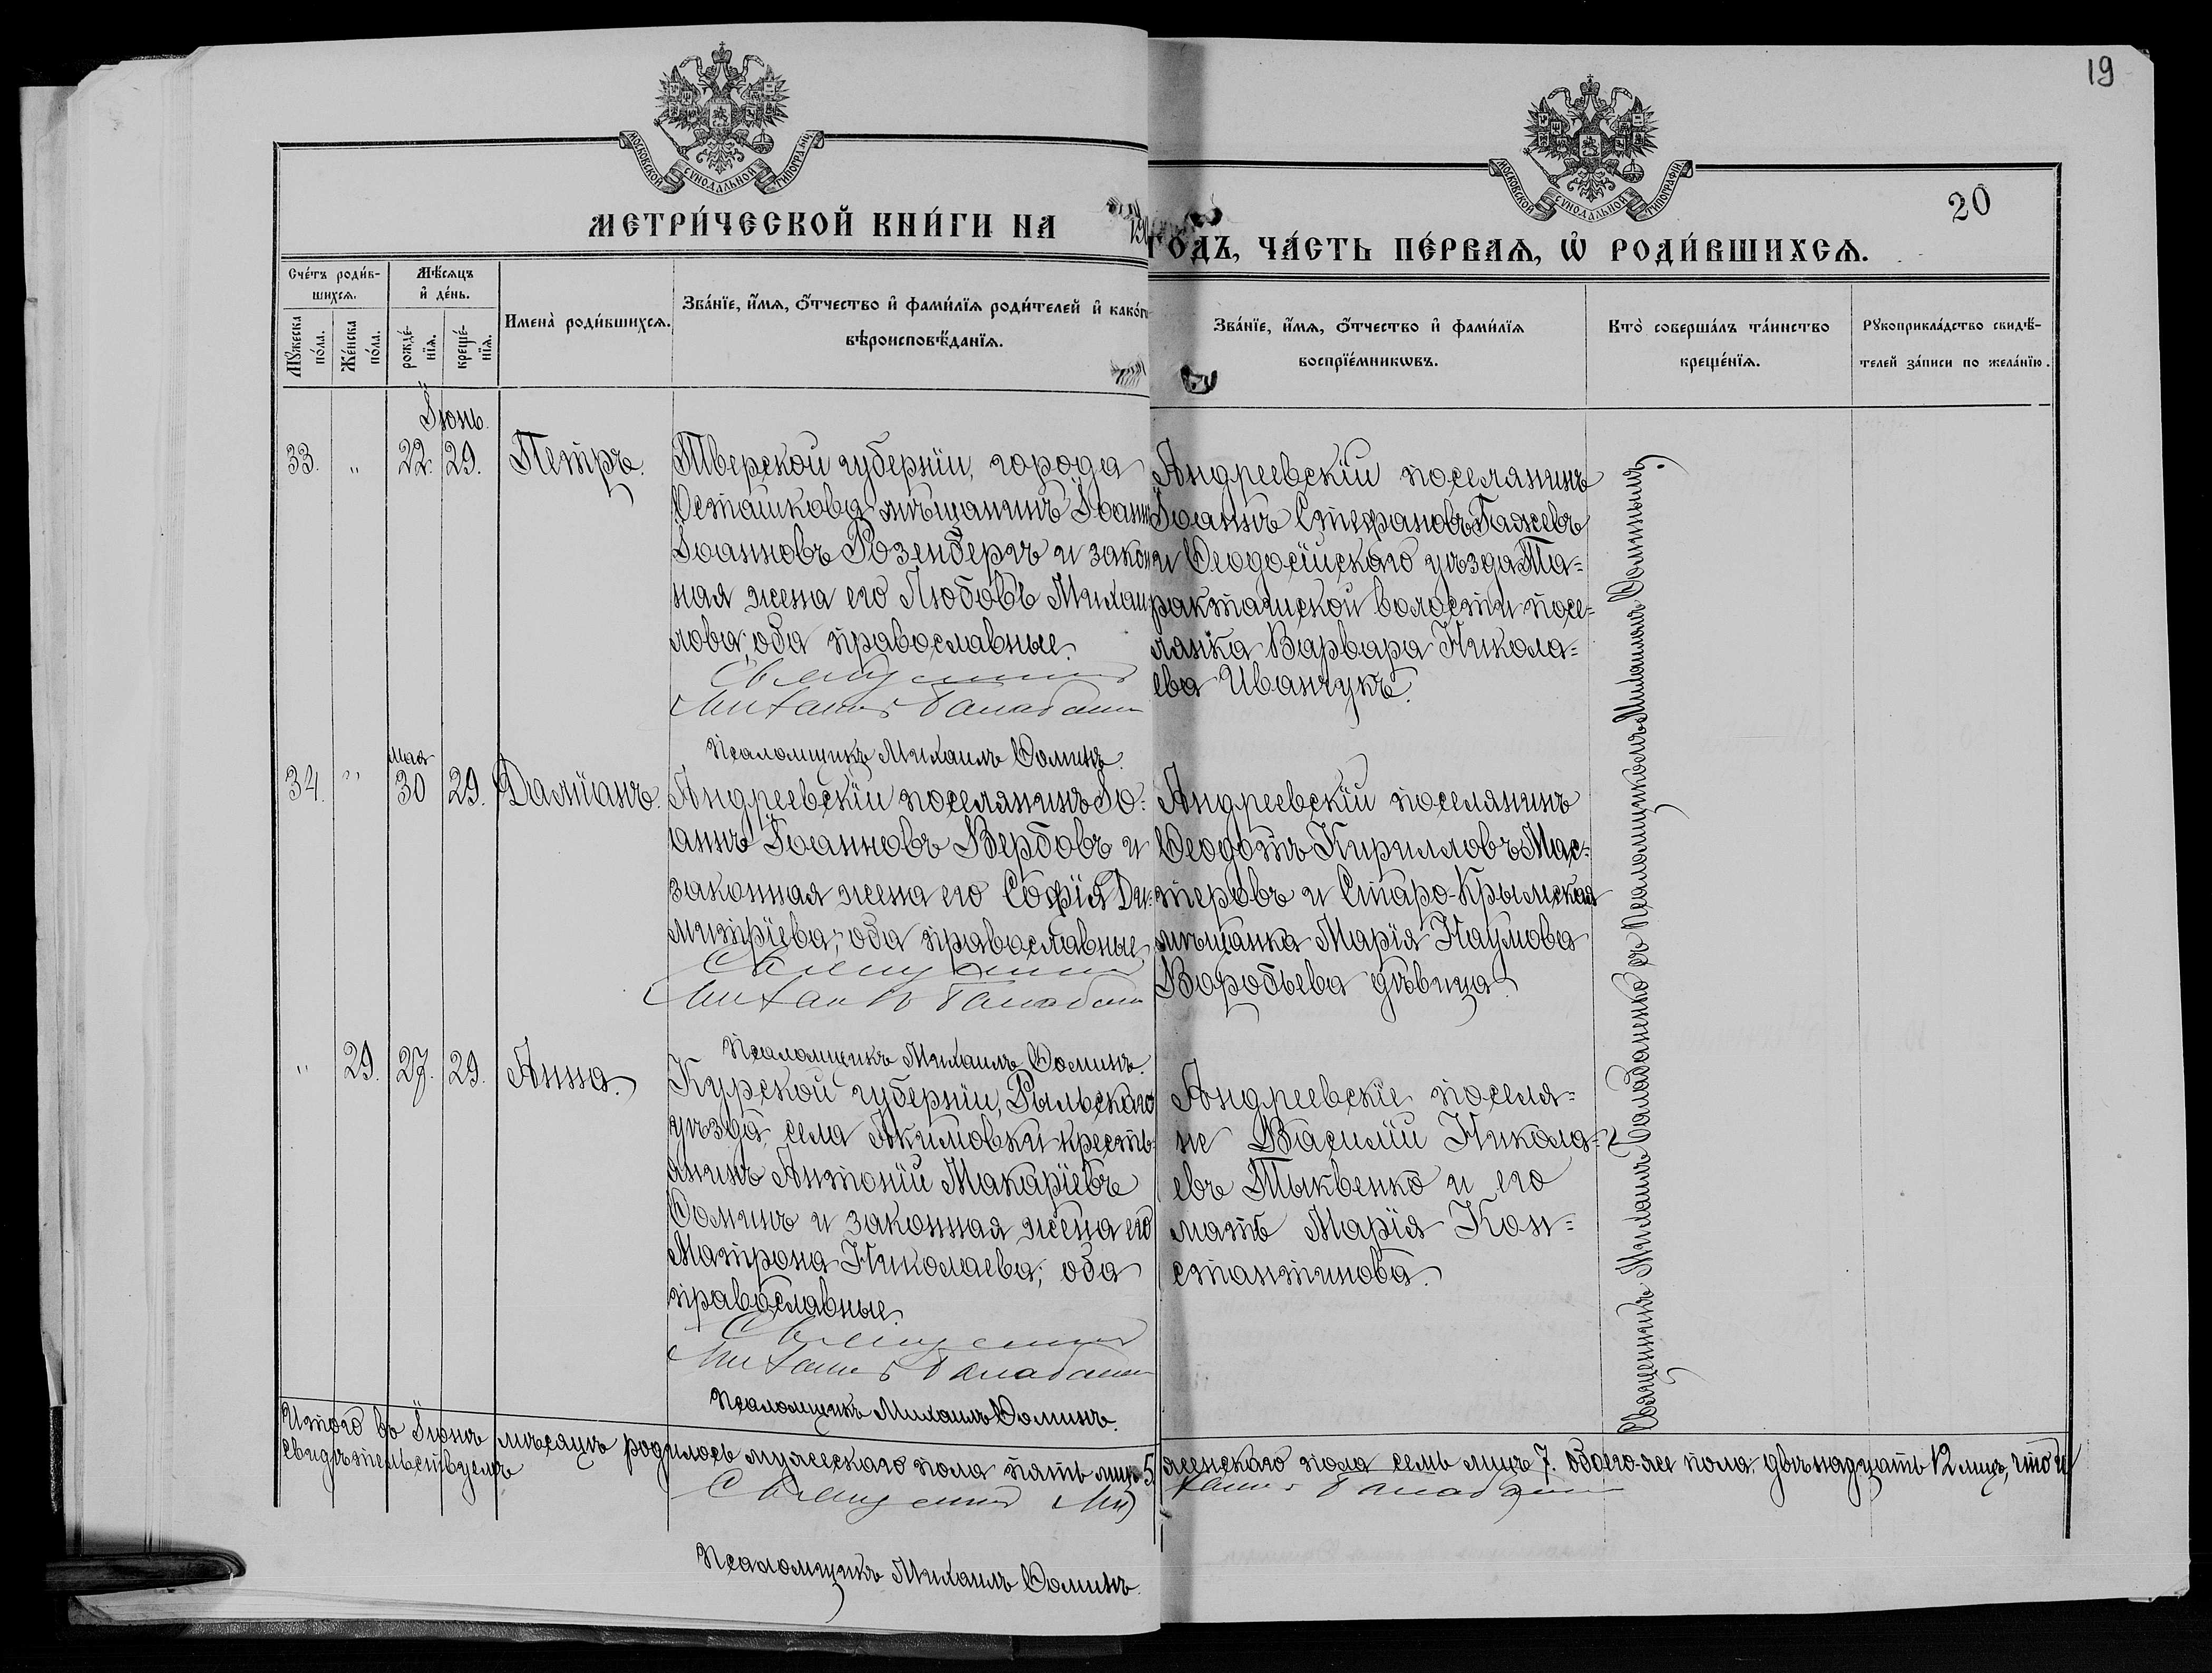 19
20
МОСКОВСКОЙ СѴНОДАЛЬНОЙ ТИПОГРАФІИ
МОСКОВСКОЙ СѴНОДАЛЬНОЙ ТИПОГРАФІИ
МЕТРИ́ЧЕСКОЙ КНИ́ГИ НА
ГОДЪ, ЧА́СТЬ ПЕ́РВАѦ, Ѡ РОДИ́ВШИХСѦ.
Сче́тъ роди́в-
шихсѧ.
Мꙋжеска по́ла.
Же́нска по́ла.
Мѣ́сѧцъ
и҆ де́нь.
рожде́-
нїѧ.
креще́-
нїѧ.
Имена̀ роди́вшихсѧ.
Зва́нїе, и҆́мѧ, ѻ҆́тчество и҆ фами́лїѧ роди́телей и҆ како́гѡ
вѣроисповѣ́данїѧ.
Зва́нїе, и҆́мѧ, ѻ҆́тчество и҆ фами́лїѧ
воспрїе́мникѡвъ.
Кто̀ соверша́лъ та́инство
креще́нїѧ.
Рꙋкоприкла́дство свидѣ́-
телей за́писи по жела́нїю.
Іюнь.
33. " 22. 29. Петръ.
Тверской губерніи, города
Осташкова мѣщанинъ Іоаннъ
Іоанновъ Розенбергъ и закон
ная жена его Любовь Михаи
лова; оба православные.
Священникъ
Михаилъ Баладаненко
Псаломщикъ Михаилъ Ѳоминъ.
Андреевскій поселянинъ
Іоаннъ Стефановъ Гажевъ
и Ѳеодосійскаго уѣзда Та=
ракташской волости посе=
лянка Варвара Никола=
ева Иванчукъ.
мая
34. " 30 29. Даміанъ.
Андреевскій поселянинъ Іо=
аннъ Іоанновъ Вербовъ и
законная жена его Софія Ди=
митріева; оба православные
Священникъ
Михаилъ Баладаненко
Псаломщикъ Михаилъ Ѳоминъ.
Андреевскій поселянинъ
Ѳеодотъ Кирилловъ Мас=
теровъ и Старо-Крымская
мѣщанка Марія Наумова
Воробьева дѣвица.
" 29. 27. 29. Анна.
Курской губерніи, Рыльскаго
уѣзда, села Акимовки кресть
янинъ Антоній Макаріевъ
Ѳоминъ и законная жена его
Матрона Николаева; оба
православные.
Священникъ
Михаилъ Баладаненко
Псаломщикъ Михаилъ Ѳоминъ.
Андреевскіе поселя=
не Василій Никола=
евъ Тыквенко и его
мать Марія Кон=
стантинова.
Священникъ Михаилъ Баладаненко съ Псаломщикомъ Михаиломъ Ѳоминымъ.
Итого въ Іюнѣ мѣсяцѣ родилось мужескаго пола пять лицъ 5 женскаго пола семь лицъ 7. обоего-же пола двѣнадцать 12 лицъ, что и
свидѣтельствуемъ
Священникъ Михаилъ Баладаненко
Псаломщикъ Михаилъ Ѳоминъ.